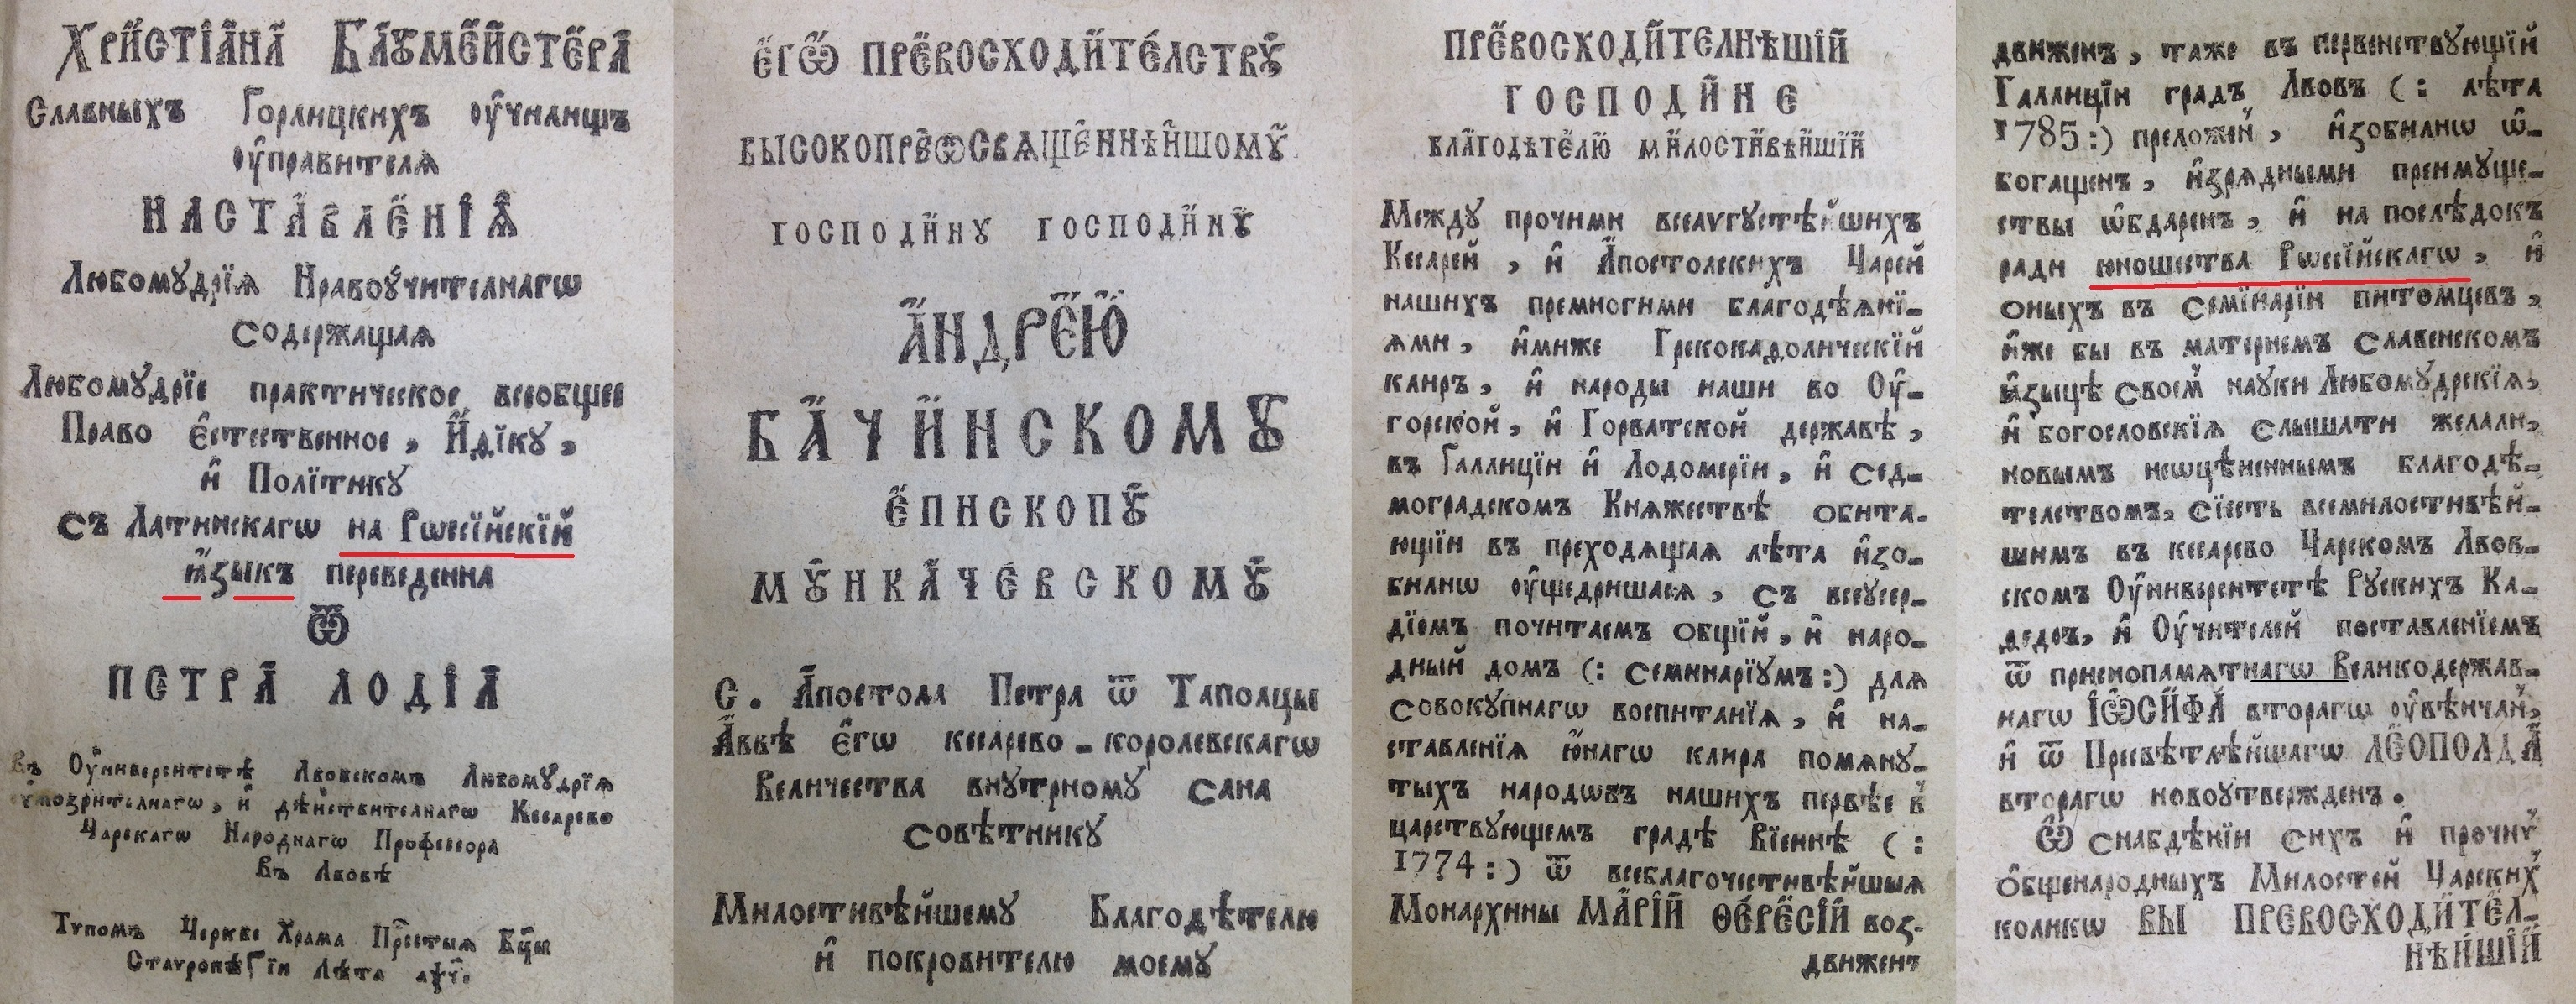 Хри́стїа́на̀ Баꙋме́йстера̀
Славныхъ Горлицкихъ оу҆чилищъ
оу҆правителѧ
НАСТА́ВЛЕ́НЇѦ҆
Любомꙋдрїѧ Нравоꙋчителнагѡ
Содержащаѧ
Любомꙋдрїе практическое всеобщее
Право є҆стественное, И҆ѳїкꙋ,
и҆ Полїтикꙋ
Съ Латинскагѡ на Рѡссїйскїй
ꙗ҆зыкъ переведенна
Ѿ
ПЕТРА̀ ЛОДІА̀
Въ Оу҆ниверситетѣ Львовскомъ Любомꙋдрїѧ
оу҆мозрителнагѡ, и҆ дѣйствителнагѡ Кесарево
Царскагѡ Народнагѡ Профессора
Въ Львовѣ
Тѵпомъ Церкве Храма Прⷭ҇тыѧ Бцⷣы
Стаѵропѣгїи лѣта аѱч҃.
Є҆ГѠ̀ ПРЕВОСХОДИ́ТЕ́ЛСТВꙊ̀
ВЫСОКОПРЕѠСВѦЩЕ́ННѢ́ЙШОМꙊ̀
ГОСПОДИ́НꙊ ГОСПОДИ́НꙊ̀
А҆НДРЕ́Ю̀
БА́ЧИ́НСКОМꙊ̀
Е҆ПИСКОПꙊ̀
МꙊ́НКА́ЧЕ́ВСКОМꙊ̀
С. А҆постола Петра ѿ Таполцы
А҆ввѣ є҆гѡ кесарево-королевскагѡ
Величества внꙋтрномꙋ Сана
Совѣтникꙋ
Милостивѣйшемꙋ Благодѣтелю
и҆ покровителю моемꙋ
ПРЕВОСХОДИ́ТЕЛНѢШІЙ
ГОСПОДИ́НЕ
БЛА́ГОДѢТЕ́ЛЮ̀ МИ́ЛОСТИ́ВѢ́ЙШІЙ
Междꙋ прочими всеаѵгꙋстѣйшихъ
Кесарей, и҆ А҆постолскихъ Царей
нашихъ премногими благодѣѧнї-
ѧми, и҆миже Грекокаѳолическїй
клиръ, и҆ народы наши во Оу҆-
горской, и҆ Горватской державѣ,
въ Галлицїи и҆ Лодомерїи, и҆ Сед-
моградскомъ Княжествѣ обита-
ющїи въ преходѧщаѧ лѣта и҆зо-
билнѡ оу҆щедришасѧ, съ всеꙋсер-
дїемъ почитаемъ общїй, и҆ наро-
дный домъ (: Семинарїумъ:) длѧ
совокꙋпнагѡ воспитанїѧ, и҆ на-
ставленїѧ ю҆нагѡ клира помѧнꙋ-
тыхъ народѡвъ нашихъ первѣе в̾
царствꙋющемъ градѣ Вїеннѣ (:
1774:) ѿ всеблагочестивѣйшыѧ
Монархины МА́РІЙ ѲЕ́РЕ́СІЙ воз-
движен
движенъ, таже въ первенствꙋющїй
Галлицїи градъ Львовъ (: лѣта
1785:) преложен̾, и҆зобилнѡ ѡ҆-
богащенъ, и҆зрѧдными преимꙋще-
ствы ѡ҆бдаренъ, и҆ на послѣдокъ
ради юношества Рѡссїйскагѡ, и҆
оныхъ въ Семїнарїи питомцевъ,
и҆же бы въ матернемъ славенскомъ
ꙗ҆зыцѣ своем̾ наꙋки Любомꙋдрскїѧ,
и҆ богословскїѧ слышати желали,
новымъ неѡцѣненнымъ благодѣ-
телствомъ, сїесть всемилостивѣй-
шимъ въ кесарево Царскомъ Львов-
скомъ Оу҆ниверситетѣ Рꙋскихъ Ка-
ѳедръ, и҆ Оу҆чителей поставленїемъ
ѿ приснопамѧтнагѡ Великодержав-
нагѡ І҆Ѡ́СИ́ФА̀ втораго оу҆вѣнчан̾,
и҆ ѿ Пресвѣтлѣйшагѡ ЛЕ́ОПОЛДА̀
вторагѡ новоꙋтвержденъ.
Ѡ҆ снабдѣнїи сихъ и҆ прочих̾
ѻ҆бщенародныхъ Милостей Царских̾
коликѡ ВЫ ПРЕВОСХОДИ́ТЕ́Л-
НѢ́ЙШІЙ